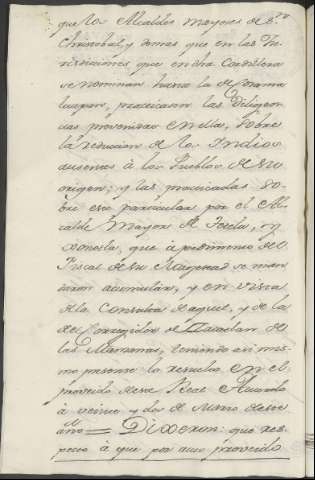 que los Alcaldes mayores de Sn
Christobal, y demas que en las Ju-
risdiciones que en dha Cordillera
se nominan hasta la de
practicasen las Diligen-
cias prevenidas en ella, sobre
la reducion de los Indios
ausentes à los Pueblos de su
origen; y las practicadas so-
bre este particular por el Al-
calde Mayor de
que à pedimento del
Fiscal de su Magestad se man-
daron acumular, y en vista
de la Consulta de aquel, y de la
del Corregidor de de
las teniendo asi mis-
mo presente lo resuelto en el
proveido de este Real Acuerdo
à veinte y dos de Marzo de este
año = Dixeron: que res-
pecto à que por auto proveido